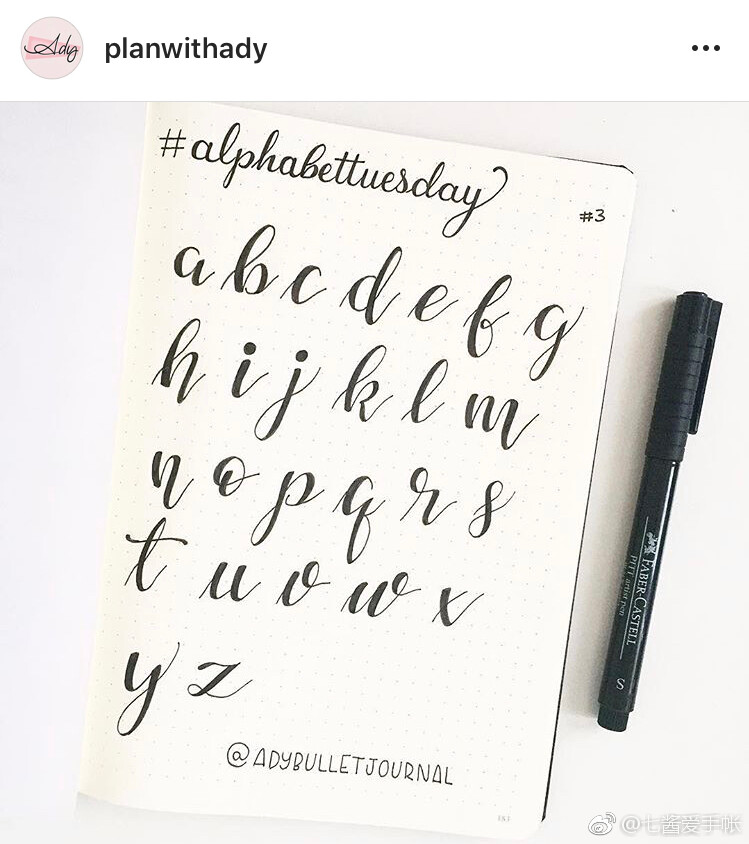 Ady
planwithady
#alphabettuesday
#3
a b c d e f g
h i j k l m
n o p q r s
t u v w x
y z
@ADYBULLETJOURNAL
FABER-CASTELL
PITT artist pen
S
183
@七酱爱手帐